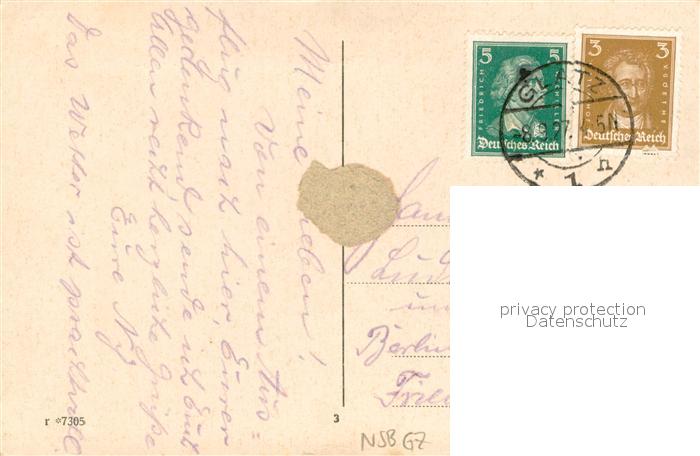 Meine Lieben!
Von einem Aus=
flug nach hier, Eurer
gedenkend sende ich Euch
Allen recht herzliche Grüße
Eure
Das Wetter ist prachtvoll.
5
FRIEDRICH
Deutsches Reich
3
3
Deutsches Reich
GLATZ
* 1 n
Berlin
r *7305
3
NSB GZ
privacy protection
Datenschutz